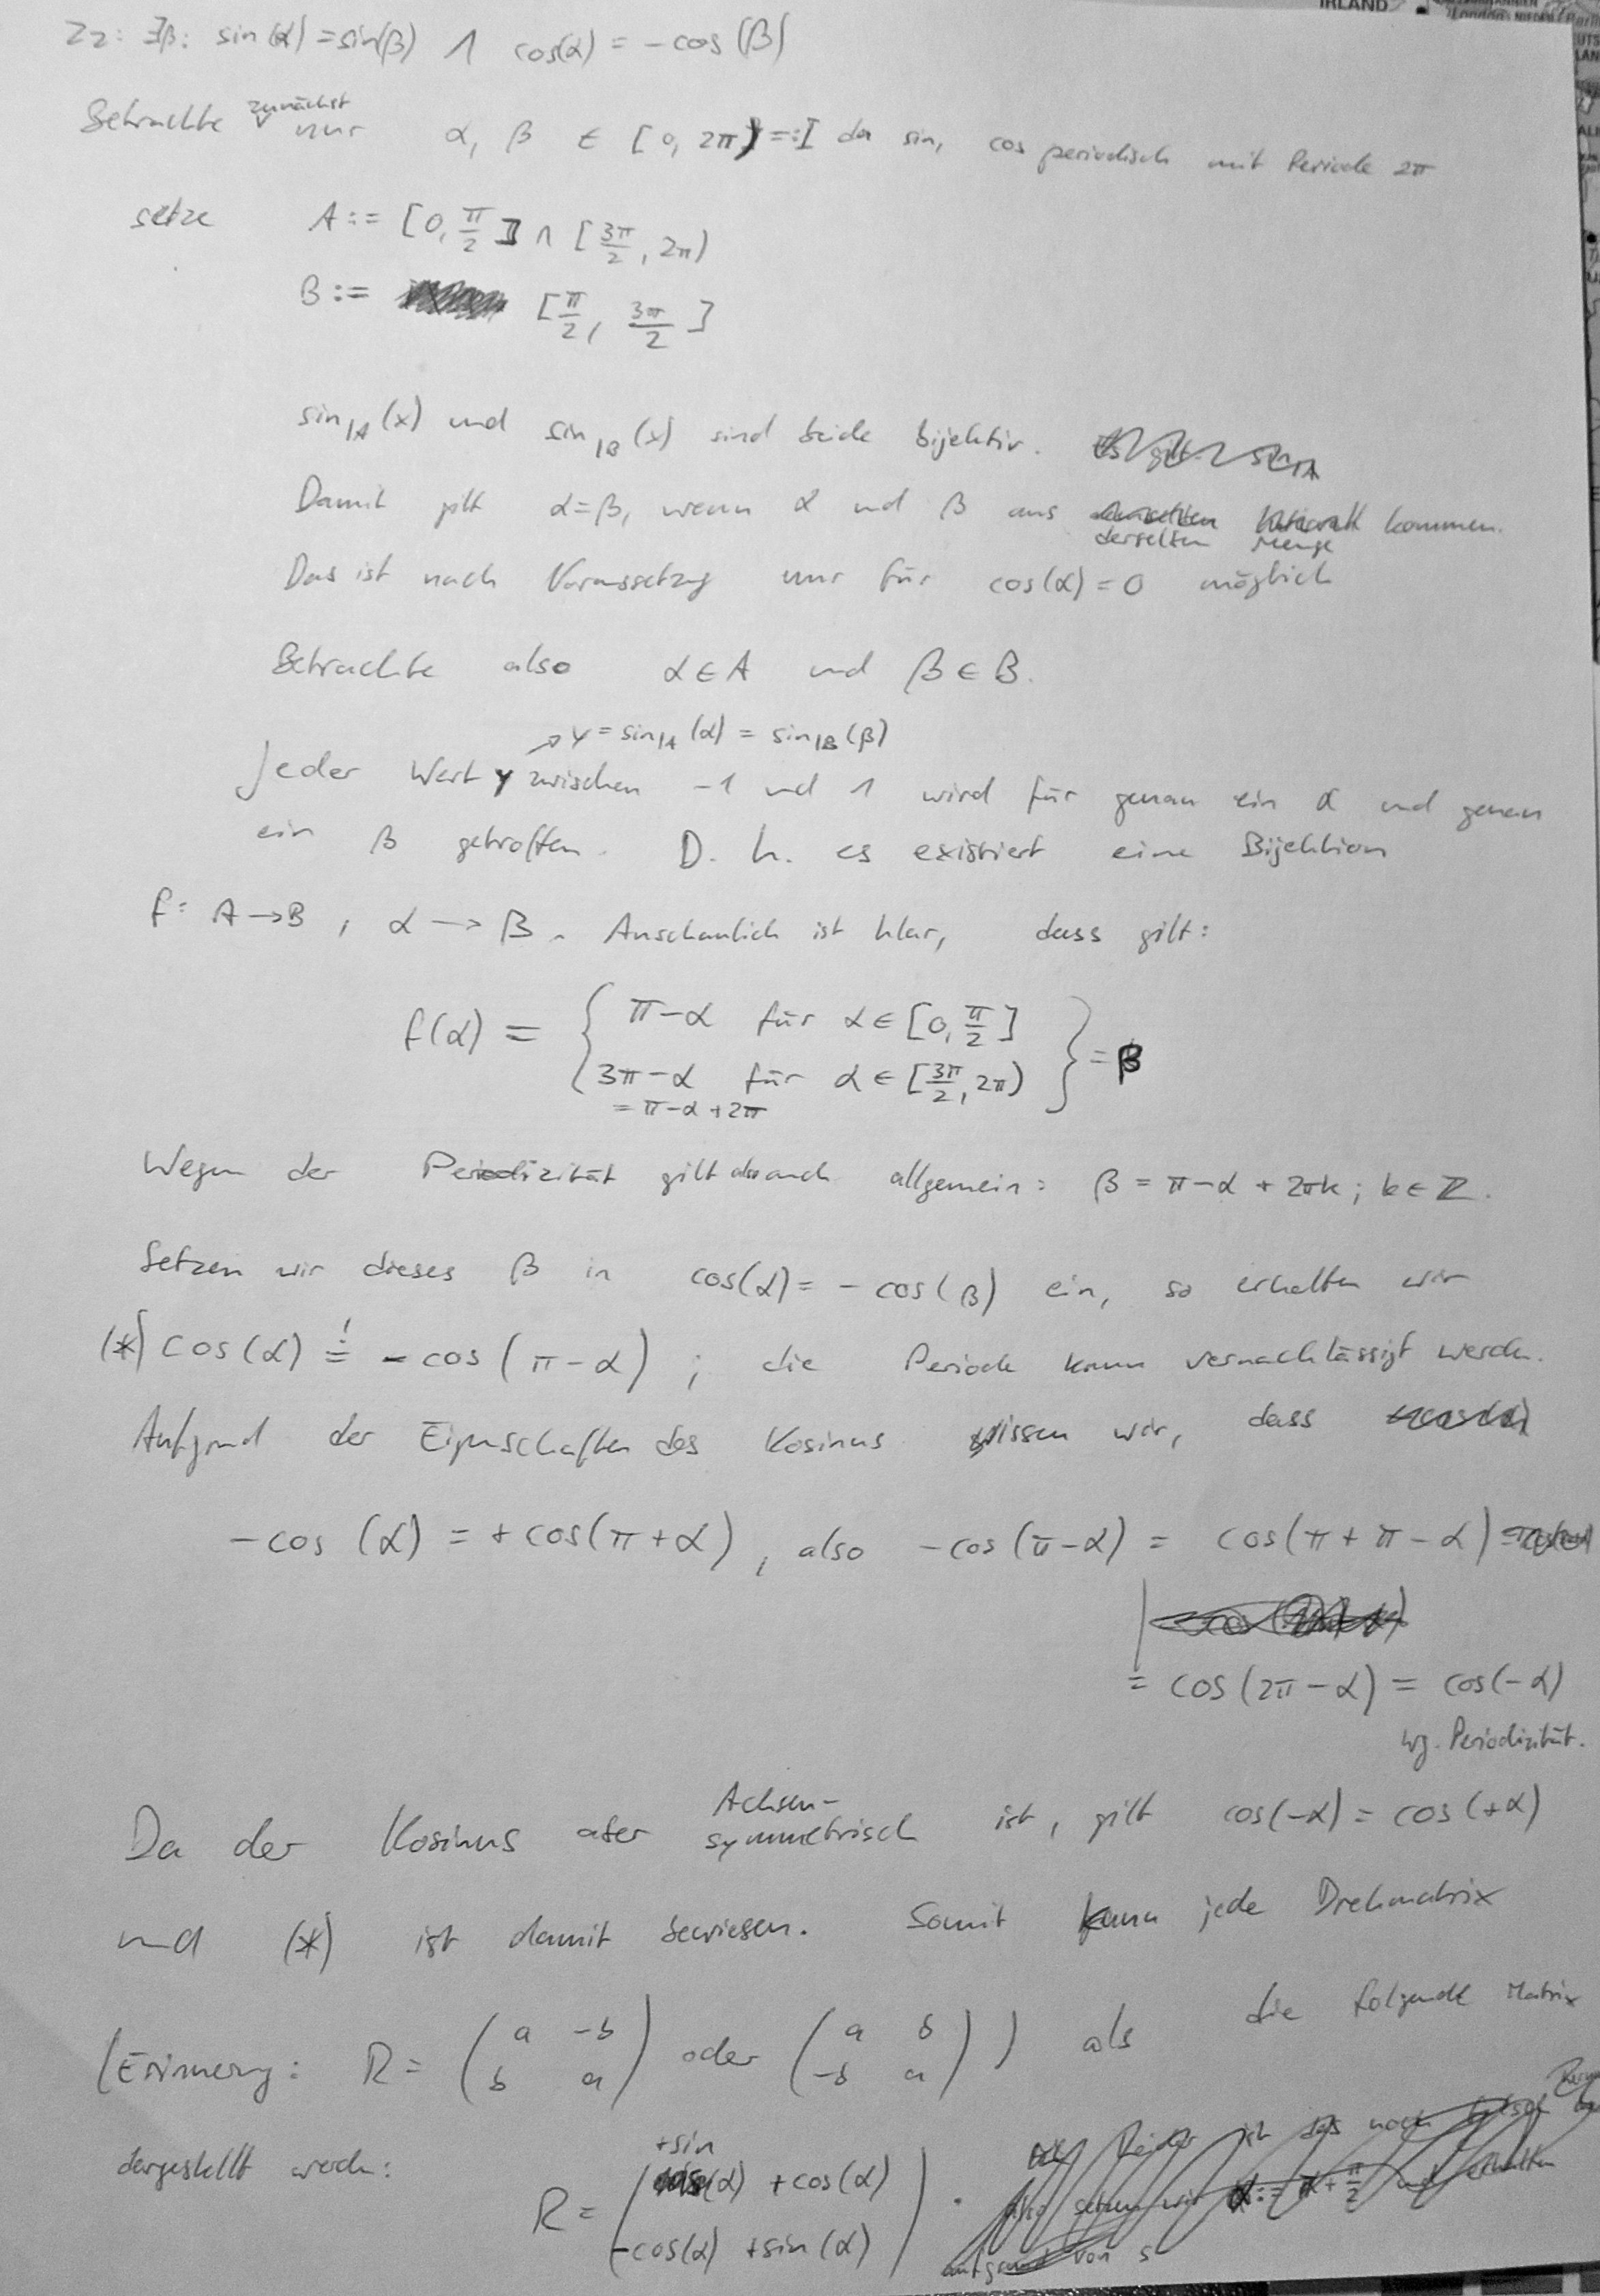 IRLAND
London
Zz: ∃β: sin(α) = sin(β) ∧ cos(α) = -cos(β)
zunächst
Betrachte nur α, β ∈ [0, 2π) =: I da sin, cos periodisch mit Periode 2π
setze A := [0, π/2] ∩ [3π/2, 2π)
B := [π/2, 3π/2]
sin|A(x) und sin|B(x) sind beide bijektiv.
Damit gilt α=β, wenn α und β aus kommen.
derselben Menge
Das ist nach Voraussetzg nur für cos(α) = 0 möglich
Betrachte also α ∈ A und β ∈ B.
↗ y = sin|A(α) = sin|B(β)
Jeder Wert y zwischen -1 und 1 wird für genau ein α und genau
ein β getroffen. D. h. es existiert eine Bijektion
f: A → B, α → β. Anschaulich ist klar, dass gilt:
f(α) = { π-α für α ∈ [0, π/2]
3π-α für α ∈ [3π/2, 2π) } = β
= π-α+2π
Wegen der Periodizität gilt auch allgemein: β = π-α + 2πk; k ∈ ℤ.
Setzen wir dieses β in cos(α) = -cos(β) ein, so erhalten wir
(*) cos(α) =! -cos(π-α); die Periode kann vernachlässigt werden.
Aufgrund der Eigenschaften des Kosinus wissen wir, dass
-cos(α) = +cos(π+α), also -cos(π-α) = cos(π+π-α)
= cos(2π-α) = cos(-α)
wg. Periodizität.
Achsen-
Da der Kosinus aber symmetrisch ist, gilt cos(-α) = cos(+α)
und (*) ist damit bewiesen. Somit kann jede Drehmatrix
(Erinnerg: R = (a -b; b a) oder (a b; -b a)) als die folgende Matrix
dargestellt werden: R = (+sin(α) +cos(α); -cos(α) +sin(α)).